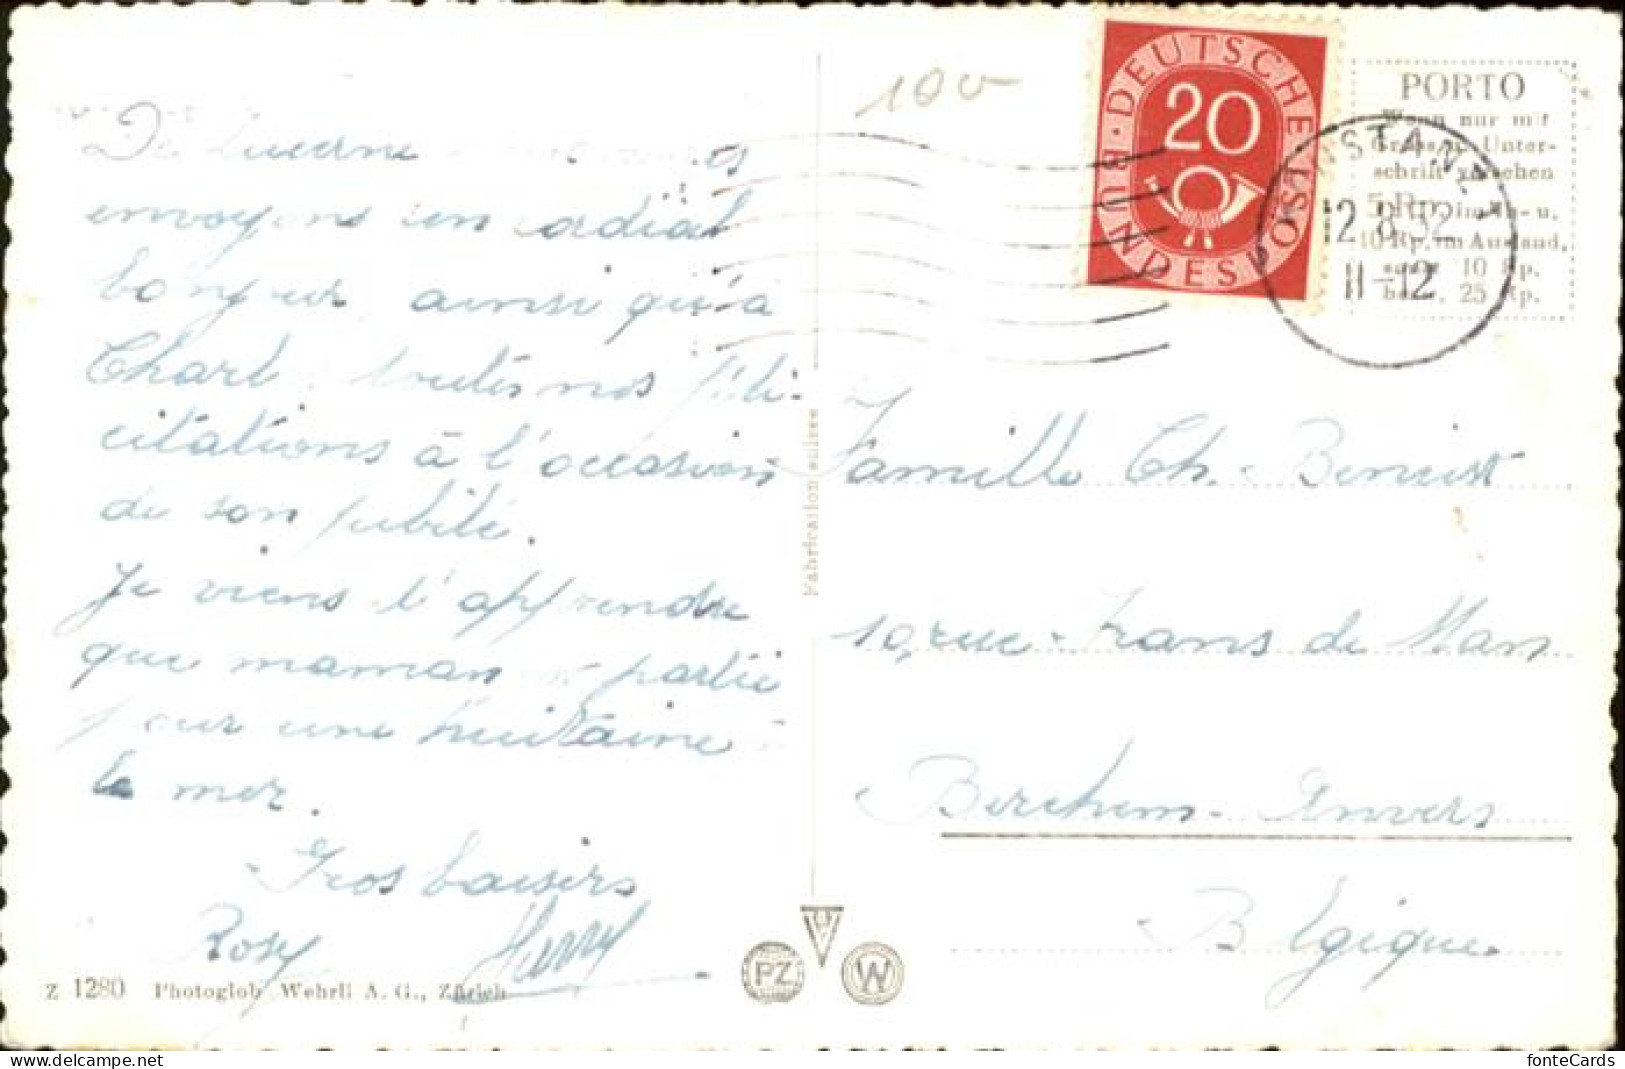 De Lucerne nous vous
envoyons un cordial
bonjour, ainsi qu'à
Charl. toutes nos féli-
citations à l'occasion
de son jubilé.
Je viens d'apprendre
que maman est partie
pour une huitaine à
la mer.
Gros baisers
Rosy Henry
Z 1280 Photoglob Wehrli A. G., Zürich
Fabrication suisse
PZ
W
100
DEUTSCHE BUNDESPOST
20
12.8.52
11-12
PORTO
Wenn nur mit
Gruss u. Unter-
schrift versehen
5 Rp. im In- u.
10 Rp. im Ausland,
sonst 10 Rp.
bezw. 25 Rp.
Famille Ch. Benoist
10, rue Frans de Man
Berchem-Anvers
Belgique
fonteCards
https://www.delcampe.net